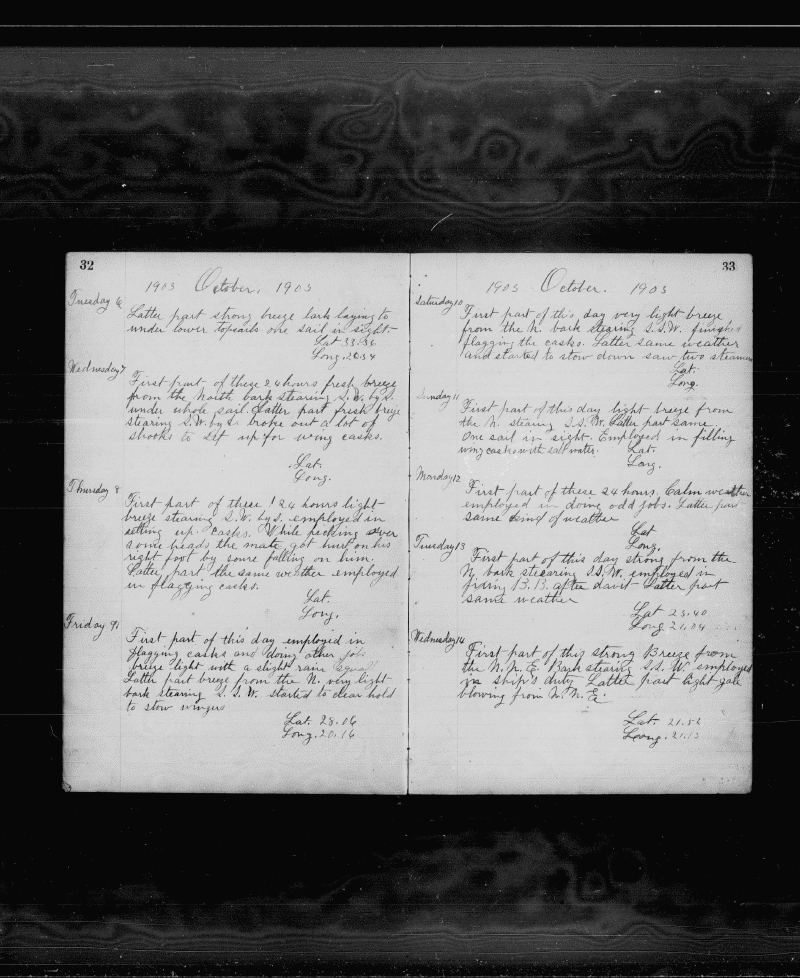 32
1903 October. 1903
Tuesday 6
Latter part strong breeze bark laying to
under lower topsails one sail in sight
Lat 33.36
Long. 20.34
Wednesday 7
First part of these 24 hours fresh breeze
from the North bark stearing S.W. by S.
under whole sail. Latter part fresh breeze
stearing S.W. by S. broke out a lot of
shooks to set up for wing casks.
Lat.
Long.
Thursday 8
First part of these 24 hours light
breeze stearing S.W. by S. employed in
setting up casks. While pecking over
some heads the mate got hurt on his
right foot by some falling on him.
Latter part the same weather employed
in flagging casks.
Lat.
Long.
Friday 9
First part of this day employed in
flagging casks and doing other jobs
breeze light with a slight rain squall
Latter part breeze from the N. very light
bark stearing S.S.W. started to clear hold
to stow wingers
Lat. 28.06
Long. 20.16
33
1903 October. 1903
Saturday 10
First part of this day very light breeze
from the N. bark stearing S.S.W. finished
flagging the casks. Latter same weather
and started to stow down saw two steamers
Lat.
Long.
Sunday 11
First part of this day light breeze from
the N. stearing S.S.W. Latter part same
One sail in sight. Employed in filling
wing casks with salt water. Lat.
Long.
Monday 12
First part of these 24 hours. Calm weather
employed in doing odd jobs. Latter part
same kind of weather
Lat
Long.
Tuesday 13
First part of this day strong from the
N. bark stearing S.S.W. employed in
fixing B.B. after davit Latter part
same weather
Lat 23.40
Long 21.04
Wednesday 14
First part of this strong Breeze from
the N.N.E. Bark stearing S.S.W. employed
in ship's duty Latter part light gale
blowing from N.N.E.
Lat. 21.52
Loong. 21.13